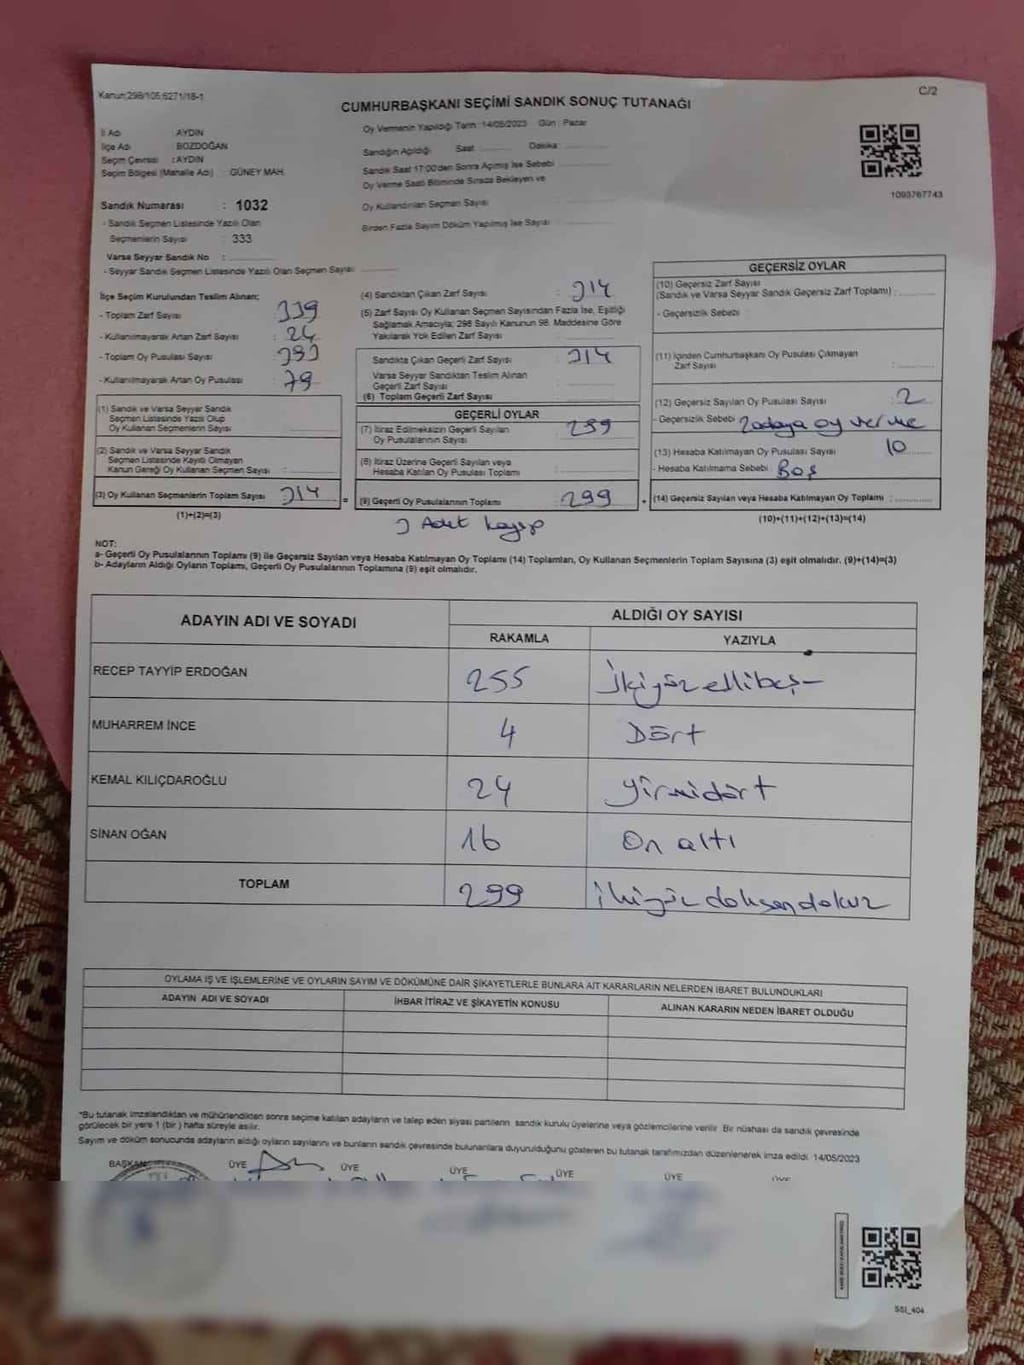 Kanun;298/105;6271/18-1
C/2
CUMHURBAŞKANI SEÇİMİ SANDIK SONUÇ TUTANAĞI
İl Adı : AYDIN
İlçe Adı : BOZDOĞAN
Seçim Çevresi : AYDIN
Seçim Bölgesi (Mahalle Adı) : GÜNEY MAH.
Sandık Numarası : 1032
- Sandık Seçmen Listesinde Yazılı Olan
Seçmenlerin Sayısı : 333
Varsa Seyyar Sandık No :
- Seyyar Sandık Seçmen Listesinde Yazılı Olan Seçmen Sayısı
Oy Vermenin Yapıldığı Tarih :14/05/2023 Gün : Pazar
Sandığın Açıldığı Saat Dakika
Sandık Saat 17:00'den Sonra Açılmış İse Sebebi
Oy Verme Saati Bitiminde Sırada Bekleyen ve
Oy Kullandırılan Seçmen Sayısı
Birden Fazla Sayım Döküm Yapılmış İse Sayısı
1093767743
İlçe Seçim Kurulundan Teslim Alınan;
- Toplam Zarf Sayısı : 339
- Kullanılmayarak Artan Zarf Sayısı : 24
- Toplam Oy Pusulası Sayısı : 393
- Kullanılmayarak Artan Oy Pusulası : 79
(1) Sandık ve Varsa Seyyar Sandık
Seçmen Listesinde Yazılı Olup
Oy Kullanan Seçmenlerin Sayısı
(2) Sandık ve Varsa Seyyar Sandık
Seçmen Listesinde Kayıtlı Olmayan
Kanun Gereği Oy Kullanan Seçmen Sayısı :
(3) Oy Kullanan Seçmenlerin Toplam Sayısı : 314 =
(1)+(2)=(3)
(4) Sandıktan Çıkan Zarf Sayısı : 314
(5) Zarf Sayısı Oy Kullanan Seçmen Sayısından Fazla İse, Eşitliği
Sağlamak Amacıyla; 298 Sayılı Kanunun 98. Maddesine Göre
Yakılarak Yok Edilen Zarf Sayısı
Sandıkta Çıkan Geçerli Zarf Sayısı : 314
Varsa Seyyar Sandıktan Teslim Alınan
Geçerli Zarf Sayısı
(6) Toplam Geçerli Zarf Sayısı
GEÇERLİ OYLAR
(7) İtiraz Edilmeksizin Geçerli Sayılan : 299
Oy Pusulalarının Sayısı
(8) İtiraz Üzerine Geçerli Sayılan veya
Hesaba Katılan Oy Pusulası Toplamı :
(9) Geçerli Oy Pusulalarının Toplamı : 299 +
3 Adet kayıp
GEÇERSİZ OYLAR
(10) Geçersiz Zarf Sayısı
(Sandık ve Varsa Seyyar Sandık Geçersiz Zarf Toplamı) :
- Geçersizlik Sebebi
(11) İçinden Cumhurbaşkanı Oy Pusulası Çıkmayan
Zarf Sayısı :
(12) Geçersiz Sayılan Oy Pusulası Sayısı : 2
- Geçersizlik Sebebi : 2 adaya oy verme
(13) Hesaba Katılmayan Oy Pusulası Sayısı : 10
- Hesaba Katılmama Sebebi : Boş
(14) Geçersiz Sayılan veya Hesaba Katılmayan Oy Toplamı :
(10)+(11)+(12)+(13)=(14)
NOT:
a- Geçerli Oy Pusulalarının Toplamı (9) ile Geçersiz Sayılan veya Hesaba Katılmayan Oy Toplamı (14) Toplamları, Oy Kullanan Seçmenlerin Toplam Sayısına (3) eşit olmalıdır. (9)+(14)=(3)
b- Adayların Aldığı Oyların Toplamı, Geçerli Oy Pusulalarının Toplamına (9) eşit olmalıdır.
ADAYIN ADI VE SOYADI ALDIĞI OY SAYISI
RAKAMLA YAZIYLA
RECEP TAYYİP ERDOĞAN 255 İkiyüz ellibeş
MUHARREM İNCE 4 Dört
KEMAL KILIÇDAROĞLU 24 yirmidört
SİNAN OĞAN 16 On altı
TOPLAM 299 ikiyüz doksandokuz
OYLAMA İŞ VE İŞLEMLERİNE VE OYLARIN SAYIM VE DÖKÜMÜNE DAİR ŞİKAYETLERLE BUNLARA AİT KARARLARIN NELERDEN İBARET BULUNDUKLARI
ADAYIN ADI VE SOYADI İHBAR İTİRAZ VE ŞİKAYETİN KONUSU ALINAN KARARIN NEDEN İBARET OLDUĞU
*Bu tutanak imzalandıktan ve mühürlendikten sonra seçime katılan adayların ve talep eden siyasi partilerin sandık kurulu üyelerine veya gözlemcilerine verilir. Bir nüshası da sandık çevresinde
görülecek bir yere 1 (bir) hafta süreyle asılır.
Sayım ve döküm sonucunda adayların aldığı oyların sayılarını ve bunların sandık çevresinde bulunanlara duyurulduğunu gösteren bu tutanak tarafımızdan düzenlenerek imza edildi. 14/05/2023
BAŞKAN ÜYE ÜYE ÜYE ÜYE ÜYE ÜYE
SSİ_404